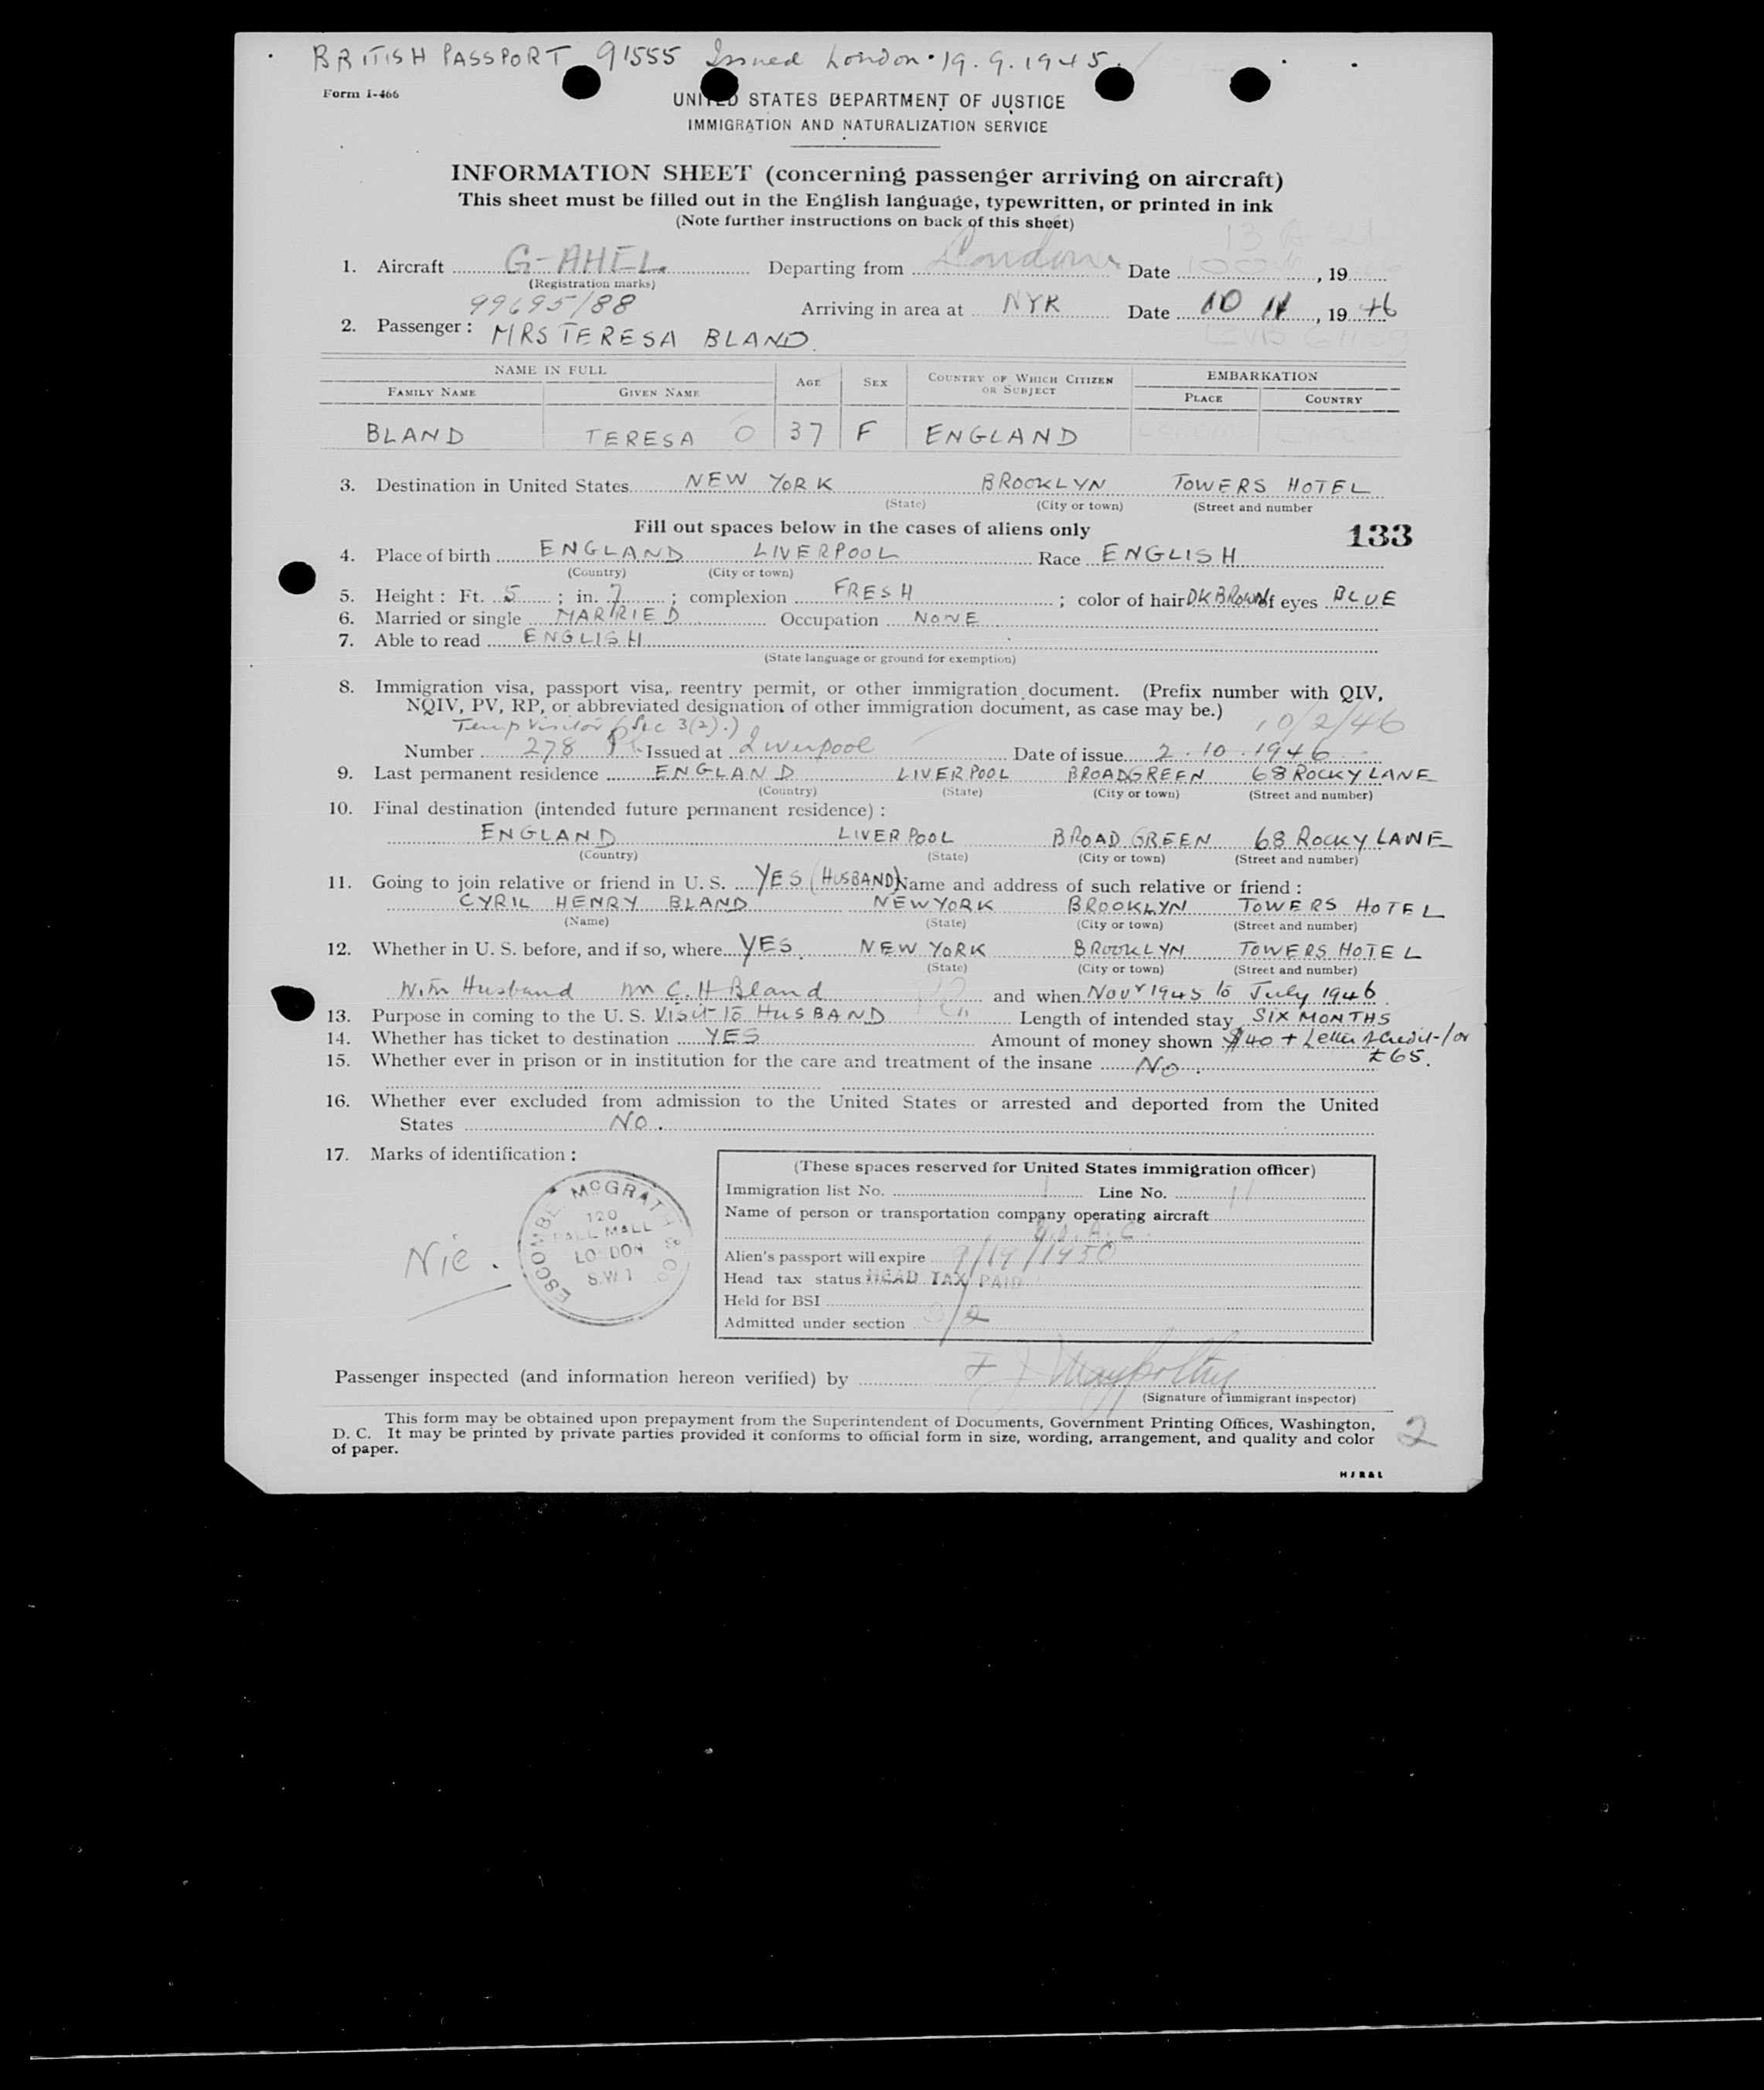 BRITISH PASSPORT 91555 Issued London 19.9.1945.
Form I-466
UNITED STATES DEPARTMENT OF JUSTICE
IMMIGRATION AND NATURALIZATION SERVICE
INFORMATION SHEET (concerning passenger arriving on aircraft)
This sheet must be filled out in the English language, typewritten, or printed in ink
(Note further instructions on back of this sheet)
1. Aircraft G-AHEL. Departing from London Date , 19
(Registration marks)
99695/88 Arriving in area at NYK Date 10 11, 1946
2. Passenger: MRS TERESA BLAND.
NAME IN FULL AGE SEX COUNTRY OF WHICH CITIZEN OR SUBJECT EMBARKATION
FAMILY NAME GIVEN NAME PLACE COUNTRY
BLAND TERESA O 37 F ENGLAND
3. Destination in United States NEW YORK BROOKLYN TOWERS HOTEL
(State) (City or town) (Street and number
Fill out spaces below in the cases of aliens only 133
4. Place of birth ENGLAND LIVERPOOL Race ENGLISH
(Country) (City or town)
5. Height: Ft. 5; in. 7; complexion FRESH; color of hair DK BROWN of eyes BLUE
6. Married or single MARRIED Occupation NONE
7. Able to read ENGLISH
(State language or ground for exemption)
8. Immigration visa, passport visa, reentry permit, or other immigration document. (Prefix number with QIV,
NQIV, PV, RP, or abbreviated designation of other immigration document, as case may be.)
Temp Visitor (Sec 3(2).) 10/2/46
Number 278 Issued at Liverpool Date of issue 2.10.1946
9. Last permanent residence ENGLAND LIVERPOOL BROADGREEN 68 ROCKY LANE
(Country) (State) (City or town) (Street and number)
10. Final destination (intended future permanent residence):
ENGLAND LIVERPOOL BROAD GREEN 68 ROCKY LANE
(Country) (State) (City or town) (Street and number)
11. Going to join relative or friend in U. S. YES (HUSBAND) Name and address of such relative or friend:
CYRIL HENRY BLAND NEW YORK BROOKLYN TOWERS HOTEL
(Name) (State) (City or town) (Street and number)
12. Whether in U. S. before, and if so, where YES. NEW YORK BROOKLYN TOWERS HOTEL
(State) (City or town) (Street and number)
With Husband Mr C. H Bland and when Novr 1945 to July 1946.
13. Purpose in coming to the U. S. Visit To HUSBAND Length of intended stay SIX MONTHS
14. Whether has ticket to destination YES Amount of money shown $40 + Letter of Credit for
15. Whether ever in prison or in institution for the care and treatment of the insane No. £65.
16. Whether ever excluded from admission to the United States or arrested and deported from the United
States No.
17. Marks of identification:
Nie.
ESCOMBE MCGRATH & CO
120
PALL MALL
LONDON
S.W1
(These spaces reserved for United States immigration officer)
Immigration list No. 1 Line No. 11
Name of person or transportation company operating aircraft
Alien's passport will expire 9/19/1950
Head tax status HEAD TAX PAID
Held for BSI
Admitted under section 3/2
Passenger inspected (and information hereon verified) by
(Signature of immigrant inspector)
This form may be obtained upon prepayment from the Superintendent of Documents, Government Printing Offices, Washington,
D. C. It may be printed by private parties provided it conforms to official form in size, wording, arrangement, and quality and color
of paper.
2
H J R & L